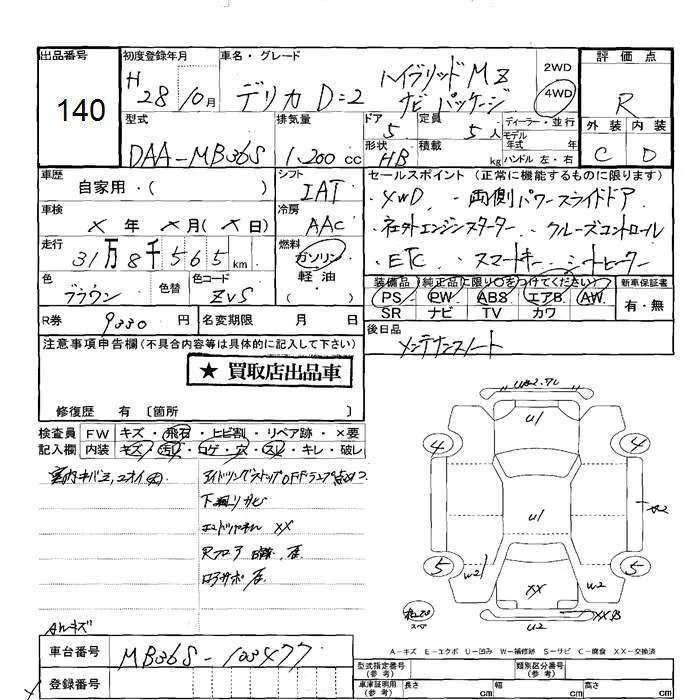 出品番号 初度登録年月 車名・グレード 2WD 評価点
140
H 28 10月 デリカD=2 ハイブリッドMZ 4WD R
ナビパッケージ
型式 排気量 ドア 定員 ディーラー・並行 外装 内装
DAA-MB36S 1,200cc 5 5人 モデル年式 年 C D
形状 積載
HB kg ハンドル 左・右
車歴 シフト セールスポイント(正常に機能するものに限ります)
自家用・( ) IAT ・4WD ・両側パワースライドドア
車検 冷房
×年×月(×日) AAC ・社外エンジンスターター ・クルーズコントロール
走行 燃料
31万8千565km ガソリン ・ETC ・スマートキー ・シートヒーター
軽油
( )
色 色替 色コード 装備品(純正品に限り○をつけてください) 新車保証書
ブラウン ZVS PS PW ABS エアB AW 有・無
SR ナビ TV カワ
R券 9330円 名変期限 月 日 後日品
メンテナンスノート
注意事項申告欄(不具合内容等は具体的に記入して下さい)
★ 買取店出品車
修復歴 有〔箇所 〕
検査員 FW キズ・飛石・ヒビ割・リペア跡・×要
記入欄 内装 キズ・汚レ・コゲ・穴・スレ・キレ・破レ
室内キバミ、ニオイ大
アイドリングストップOFFランプ点
下廻りサビ
エンドパネルXX
Rフロア
コアサポ
Aルキズ
U1
4 4
U1
5 5
W2 W2
XX
U2
スペア
A-キズ E-エクボ U-凹み W-補修跡 S-サビ C-腐食 XX-交換済
車台番号 MB36S-103477
登録番号
型式指定番号(参考) 類別区分番号(参考)
車庫証明用(参考) 長さ cm 幅 cm 高さ cm